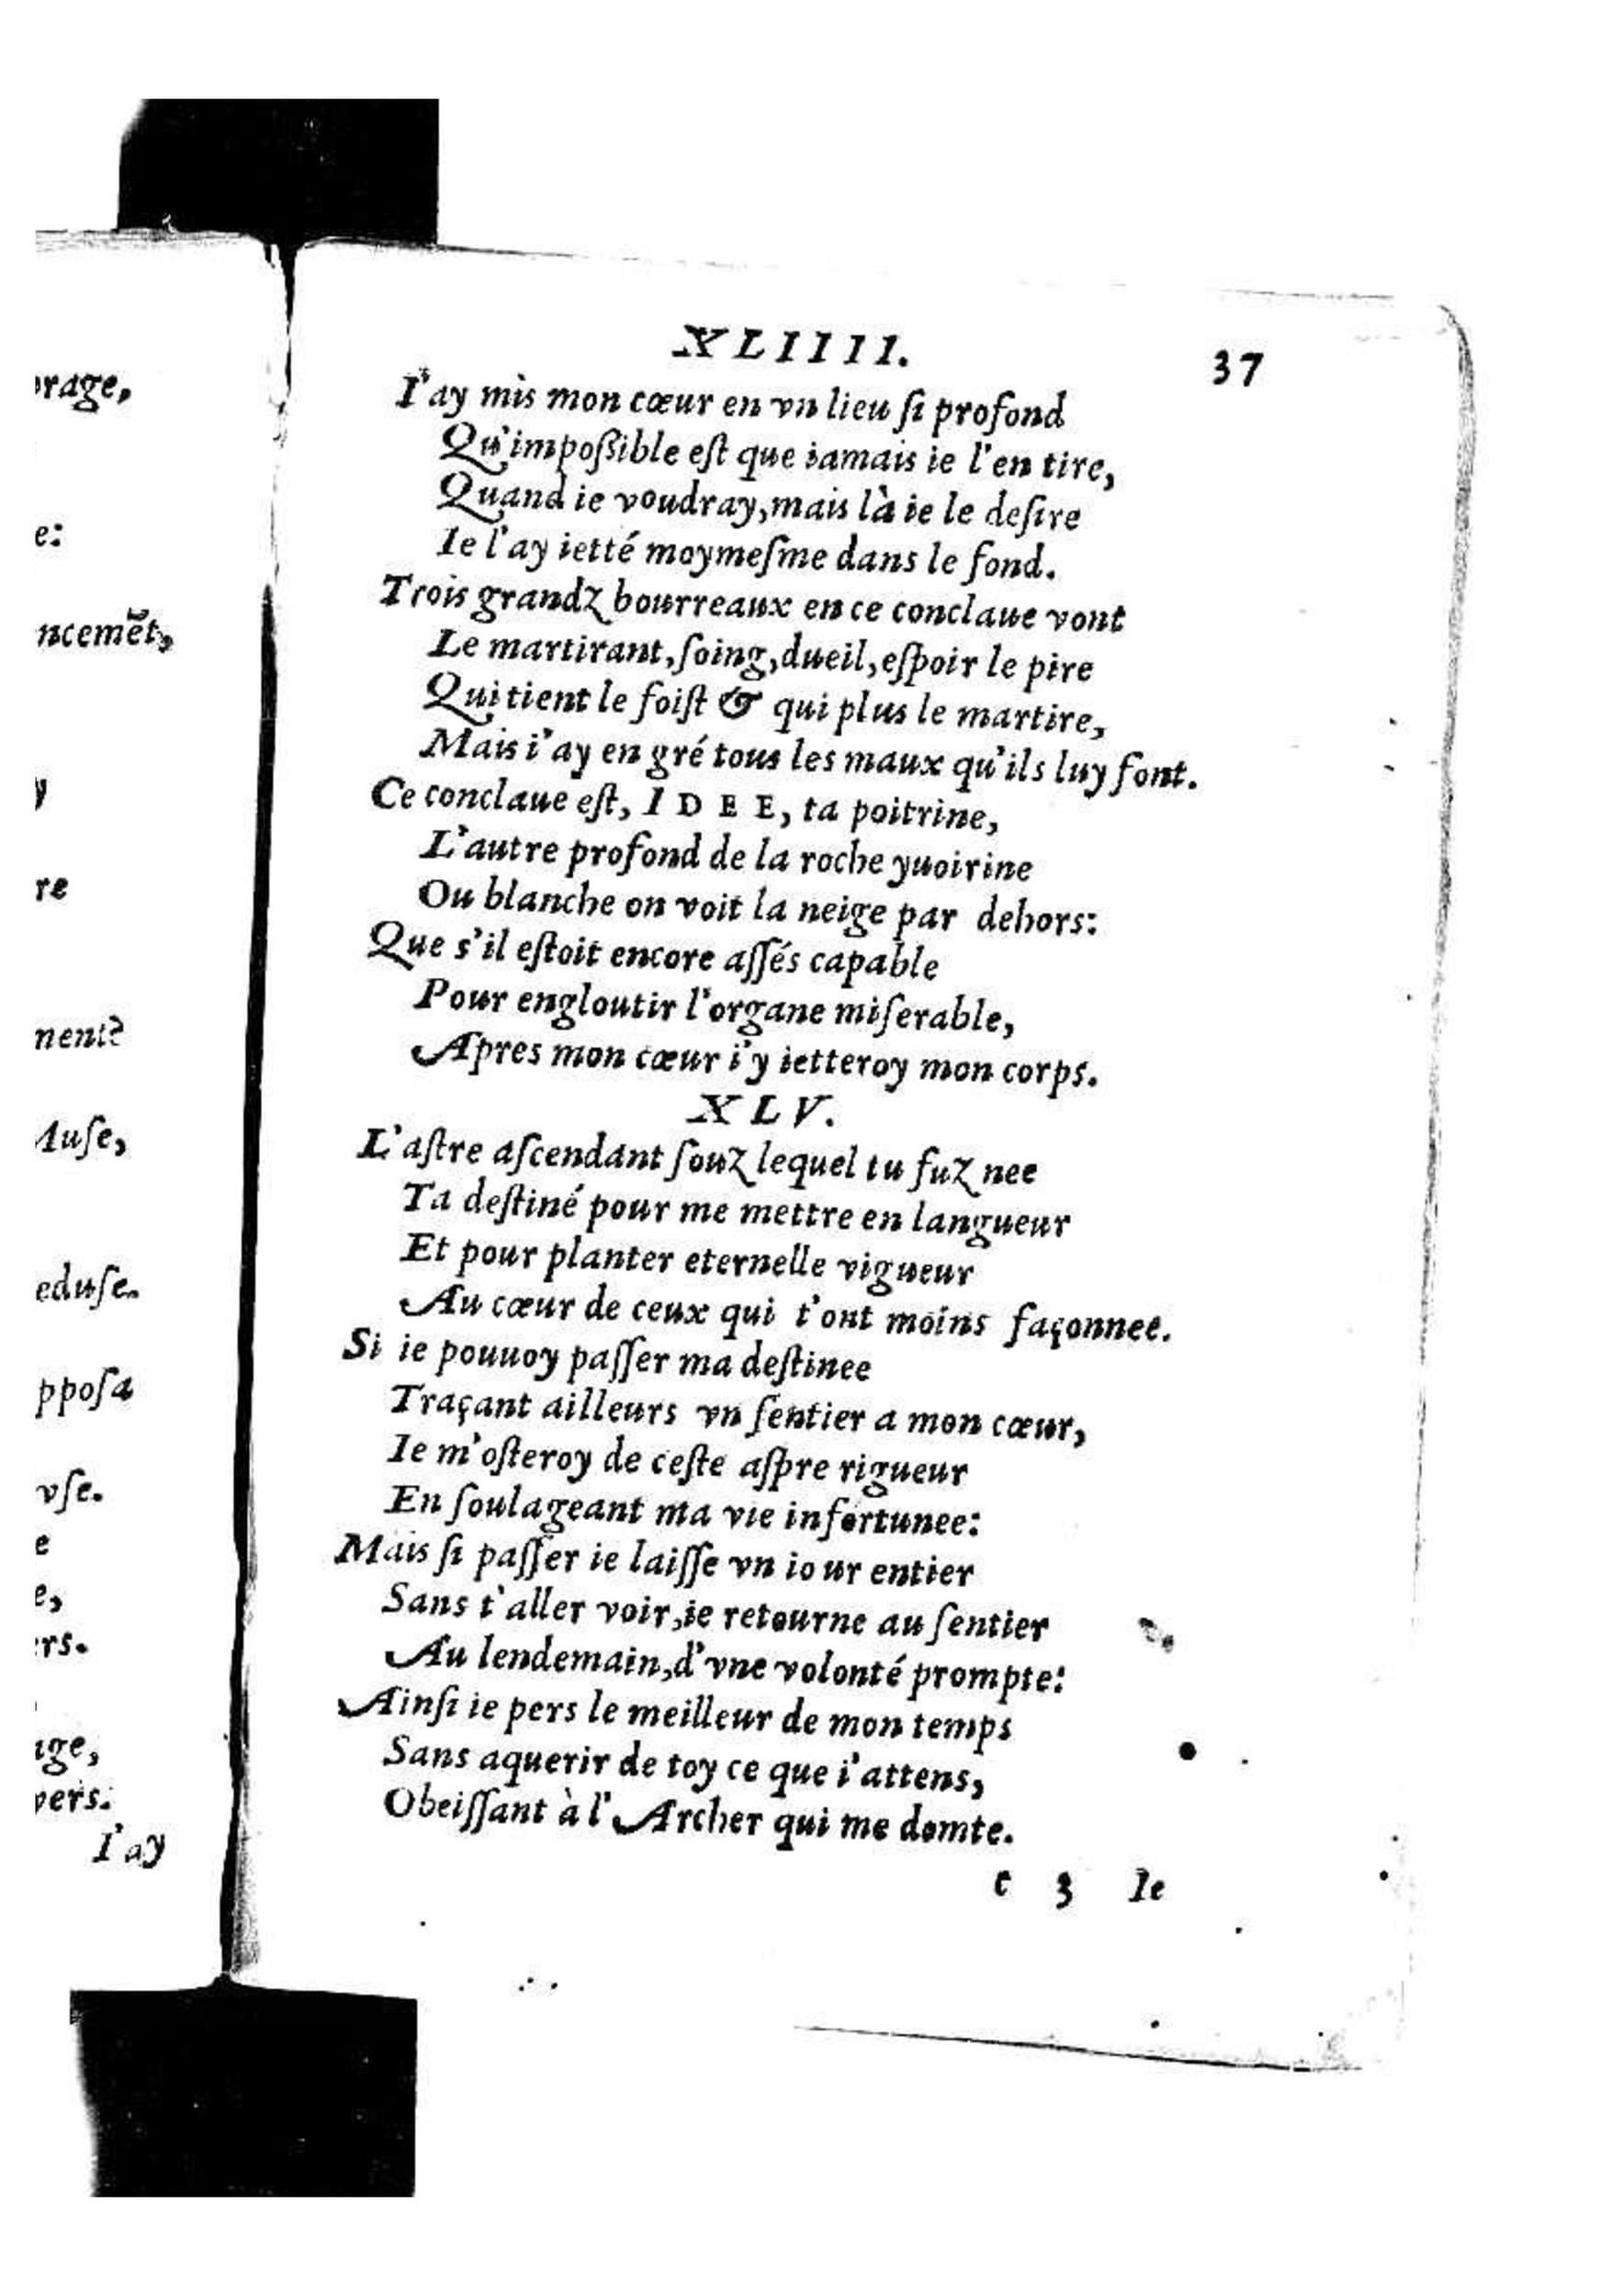 orage,
e:
ncemēt,
y
re
ment?
Muſe,
eduſe.
ppoſa
vſe.
e
e,
ers.
age,
vers.
I'ay
XLIIII.
37
I'ay mis mon cœur en vn lieu ſi profond
Qu'impoßible eſt que iamais ie l'en tire,
Quand ie voudray, mais là ie le deſire
Ie l'ay ietté moymeſme dans le fond.
Trois grandz bourreaux en ce conclaue vont
Le martirant, ſoing, dueil, eſpoir le pire
Qui tient le foiſt & qui plus le martire,
Mais i'ay en gré tous les maux qu'ils luy font.
Ce conclaue eſt, IDEE, ta poitrine,
L'autre profond de la roche yuoirine
Ou blanche on voit la neige par dehors:
Que s'il eſtoit encore aſſés capable
Pour engloutir l'organe miſerable,
Apres mon cœur i'y ietteroy mon corps.
XLV.
L'aſtre aſcendant ſouz lequel tu fuz nee
Ta deſtiné pour me mettre en langueur
Et pour planter eternelle vigueur
Au cœur de ceux qui t'ont moins façonnee.
Si ie pouuoy paſſer ma deſtinee
Traçant ailleurs vn ſentier a mon cœur,
Ie m'oſteroy de ceſte aſpre rigueur
En ſoulageant ma vie infortunee:
Mais ſi paſſer ie laiſſe vn iour entier
Sans t'aller voir, ie retourne au ſentier
Au lendemain, d'vne volonté prompte:
Ainſi ie pers le meilleur de mon temps
Sans aquerir de toy ce que i'attens,
Obeiſſant à l'Archer qui me domte.
c 3 Ie